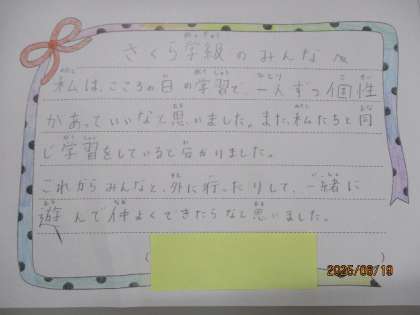 さくら学級のみんなへ
私は、こころの日の学習で、一人ずつ個性
があっていいなと思いました。また、私たちと同
じ学習をしていると分かりました。
これからみんなと、外に行ったりして、一緒に
遊んで仲よくできたらなと思いました。
2025/06/19